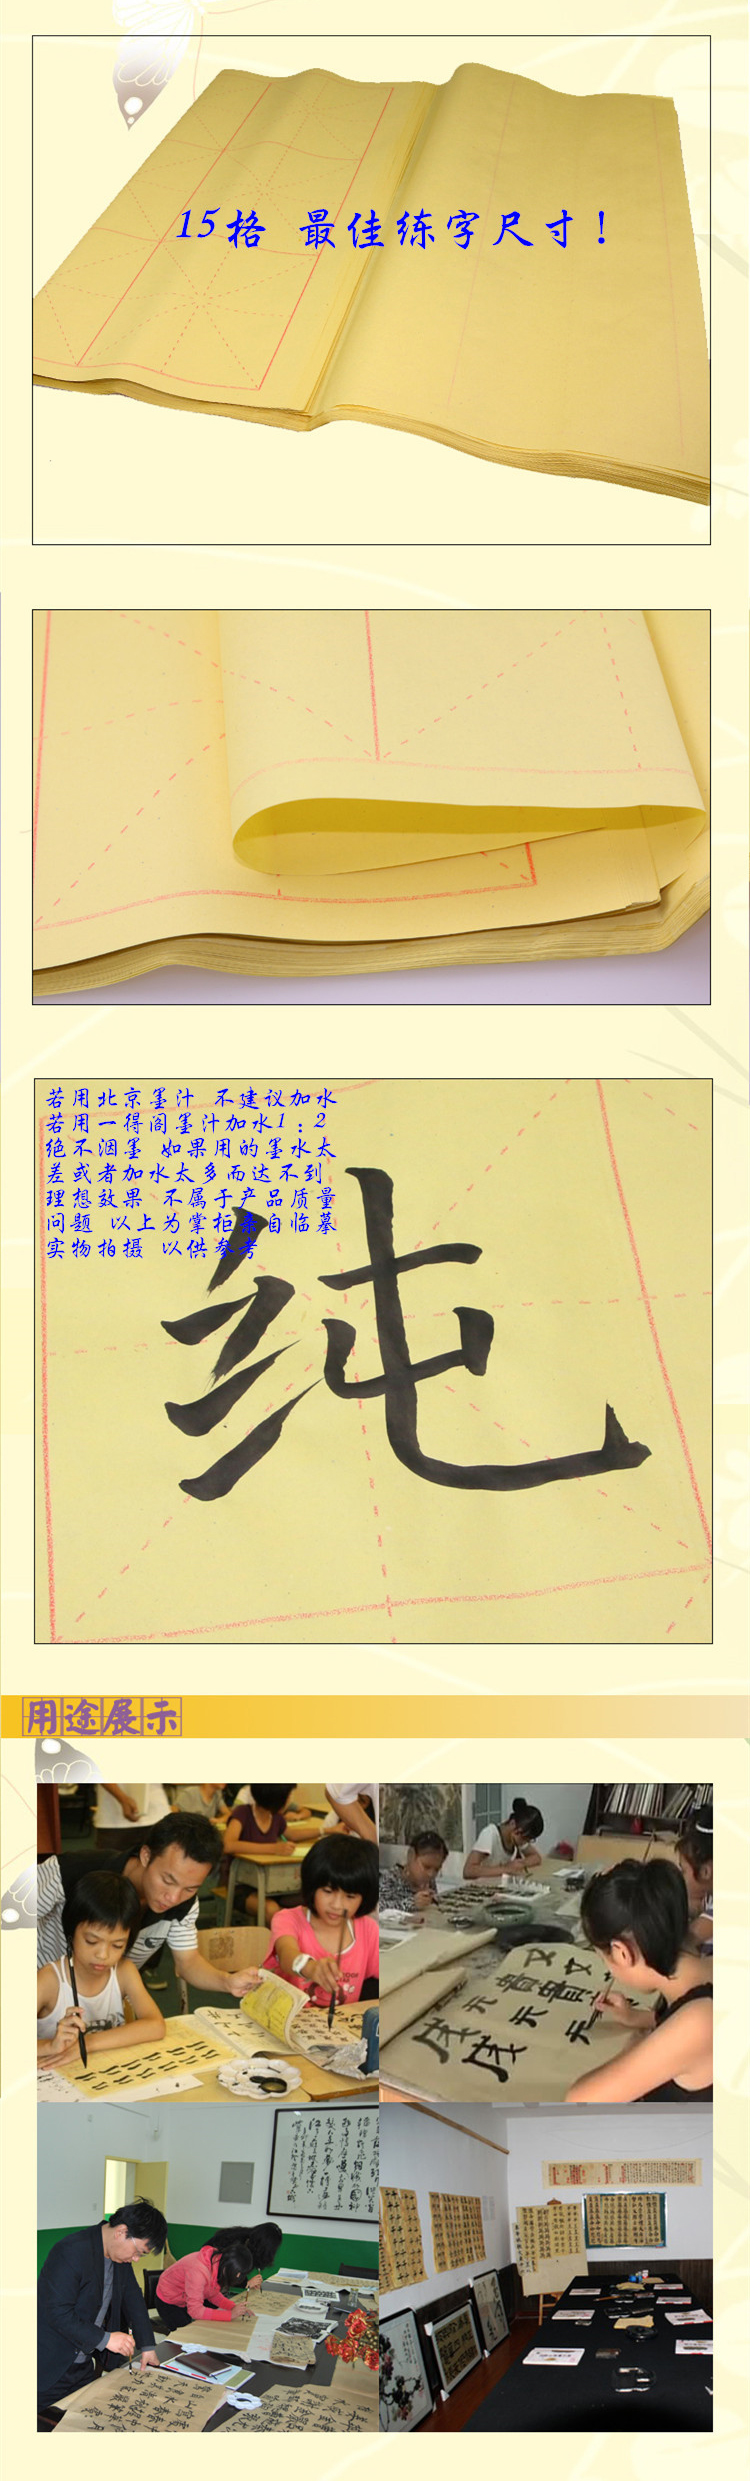 15格 最佳练字尺寸！
若用北京墨汁 不建议加水
若用一得阁墨汁加水1：2
绝不洇墨 如果用的墨水太
差或者加水太多而达不到
理想效果 不属于产品质量
问题 以上为掌柜亲自临摹
实物拍摄 以供参考
纯
用途展示